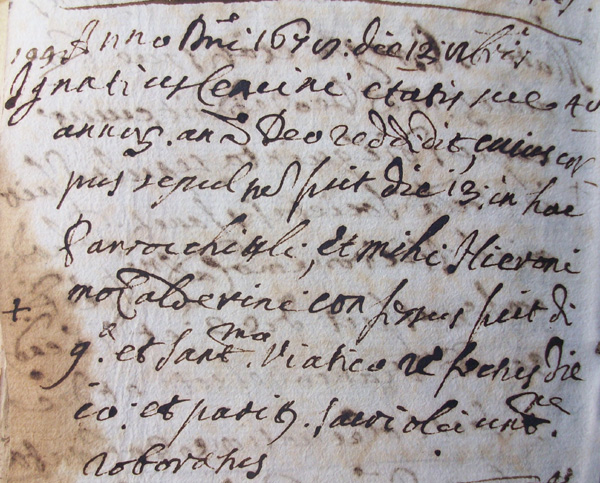 Anno Dni 1675: die 12 Xbris
Ignatius etatis sue 40
annoz. anā Deo reddidit, cuius cor
pus sepult fuit die 13. in hac
Parrochiali, Et mihi Hieroni
mo Calderini confessus fuit di
9.a et Sant.mo Viatico refectus die
io: et parit. sac.i olei unt.ne
roboratus